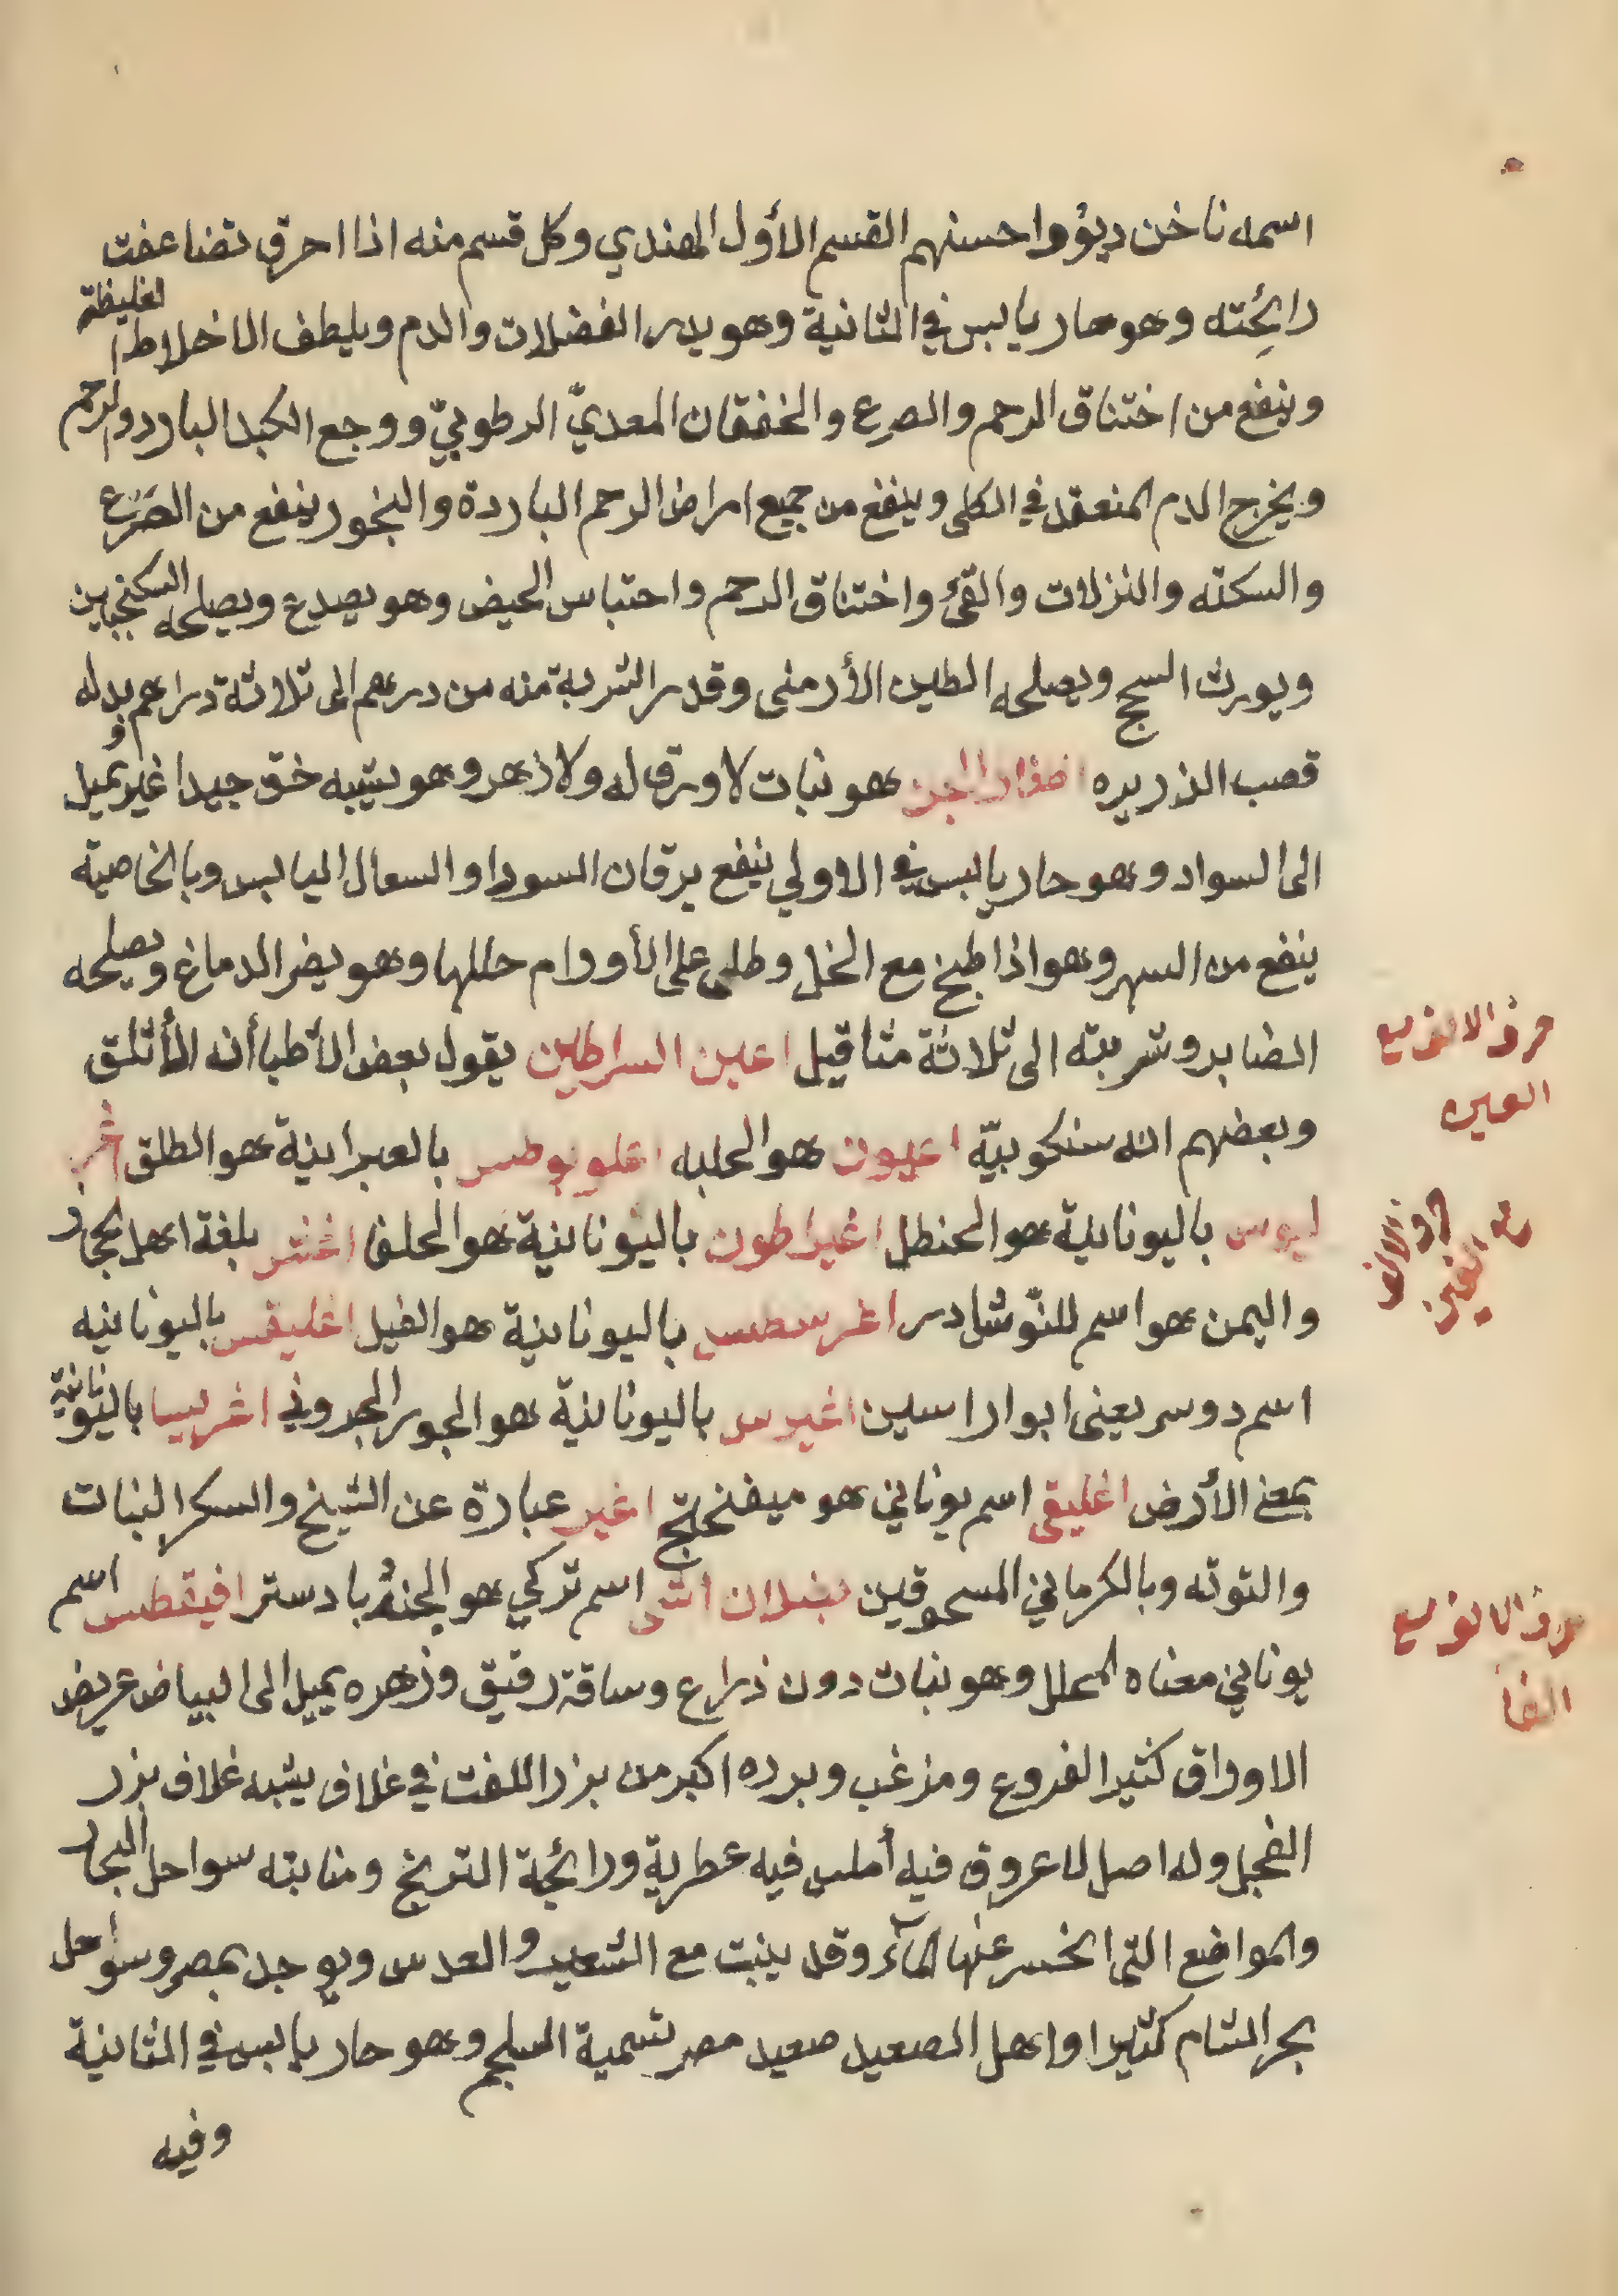 اسمه ناخن ديؤ واحسنهم القسم الأول الهندي وكل قسم منه اذا احرق تضاعفت
رائحته وهو حار يابس في الثانية وهو يدر الفضلات والدم ويلطف الاخلاط الغليظة
وينفع من اختناق الرحم والصرع والخفقان المعديّ الرطوبيّ ووجع الكبد البارد والرحم
ويخرج الدم المنعقد في الكلى وينفع من جميع امراض الرحم الباردة والبخور ينفع من الصرع
والسكته والنزلات والقئ واختناق الرحم واحتباس الحيض وهو يصدع ويصلحه السكنجبين
ويورث السحج ويصلحه الطين الأرمنى وقدر الشربة منه من درهم الى ثلاثة دراهم وبدله
قصب الذريره اظفار الجن هو نبات لا ورق له ولا زهر وهو يشبه خق جيدا غير يميل
الى السواد وهو حار يابس في الاولي ينفع يرقان السودا والسعال اليابس وبالخاصية
ينفع من السهر وهو اذا طبخ مع الخل وطلى على الأورام حللها وهو يضر الدماغ ويصلحه
الصابر وشربته الى ثلاثة مثاقيل اعين السراطين يقول بعض الأطبا أنه الأثلق
وبعضهم انه سنكوبيّه اعيون هو الحلبه اعلوبوطس بالعبرانية هو الطلق اغر
ليوس باليونانية هو الحنطل اغيراطون باليونانية هو الحلف اغنتر بلغة اهل الحجاز
واليمن هو اسم للنّوشادر اغرسطس باليونانية هو الفيل اغليقس باليونانيه
اسم دوسر يعنى ابواراسين اغيرس باليونانية هو الجور الجروني اغربيا باليونانية
بمعنى الأرض اغليقى اسم يوناني هو ميفختج اغير عبارة عن الشيخ والسكر النبات
والتوته وبالكرماني المسحوقين اسم تركي هو الجند بادستر افيقطس اسم
يوناني معناه المحلل وهو نبات دون ذراع وساقه رقيق وزهره يميل الى البياض عريض
الاوراق كثير الفروع ومزغب وبرده اكبر من بزر اللفت في غلاف يشبه غلاف بزر
الفجل وله اصل لا عروق فيه أملس فيه عطرية ورائحة الترنج ومنابته سواحل البحار
والمواضع التى انحسر عنها المآء وقد ينبت مع الشعير والعدس ويوجد بمصر وسواحل
بحر الشام كثيرا واهل الصعيد صعيد مصر تسمية السلجم وهو حار يابس في الثانية
وفيه
حرف الالف مع
العين
حرف الالف
مع الغين
حرف الالف مع
الفا